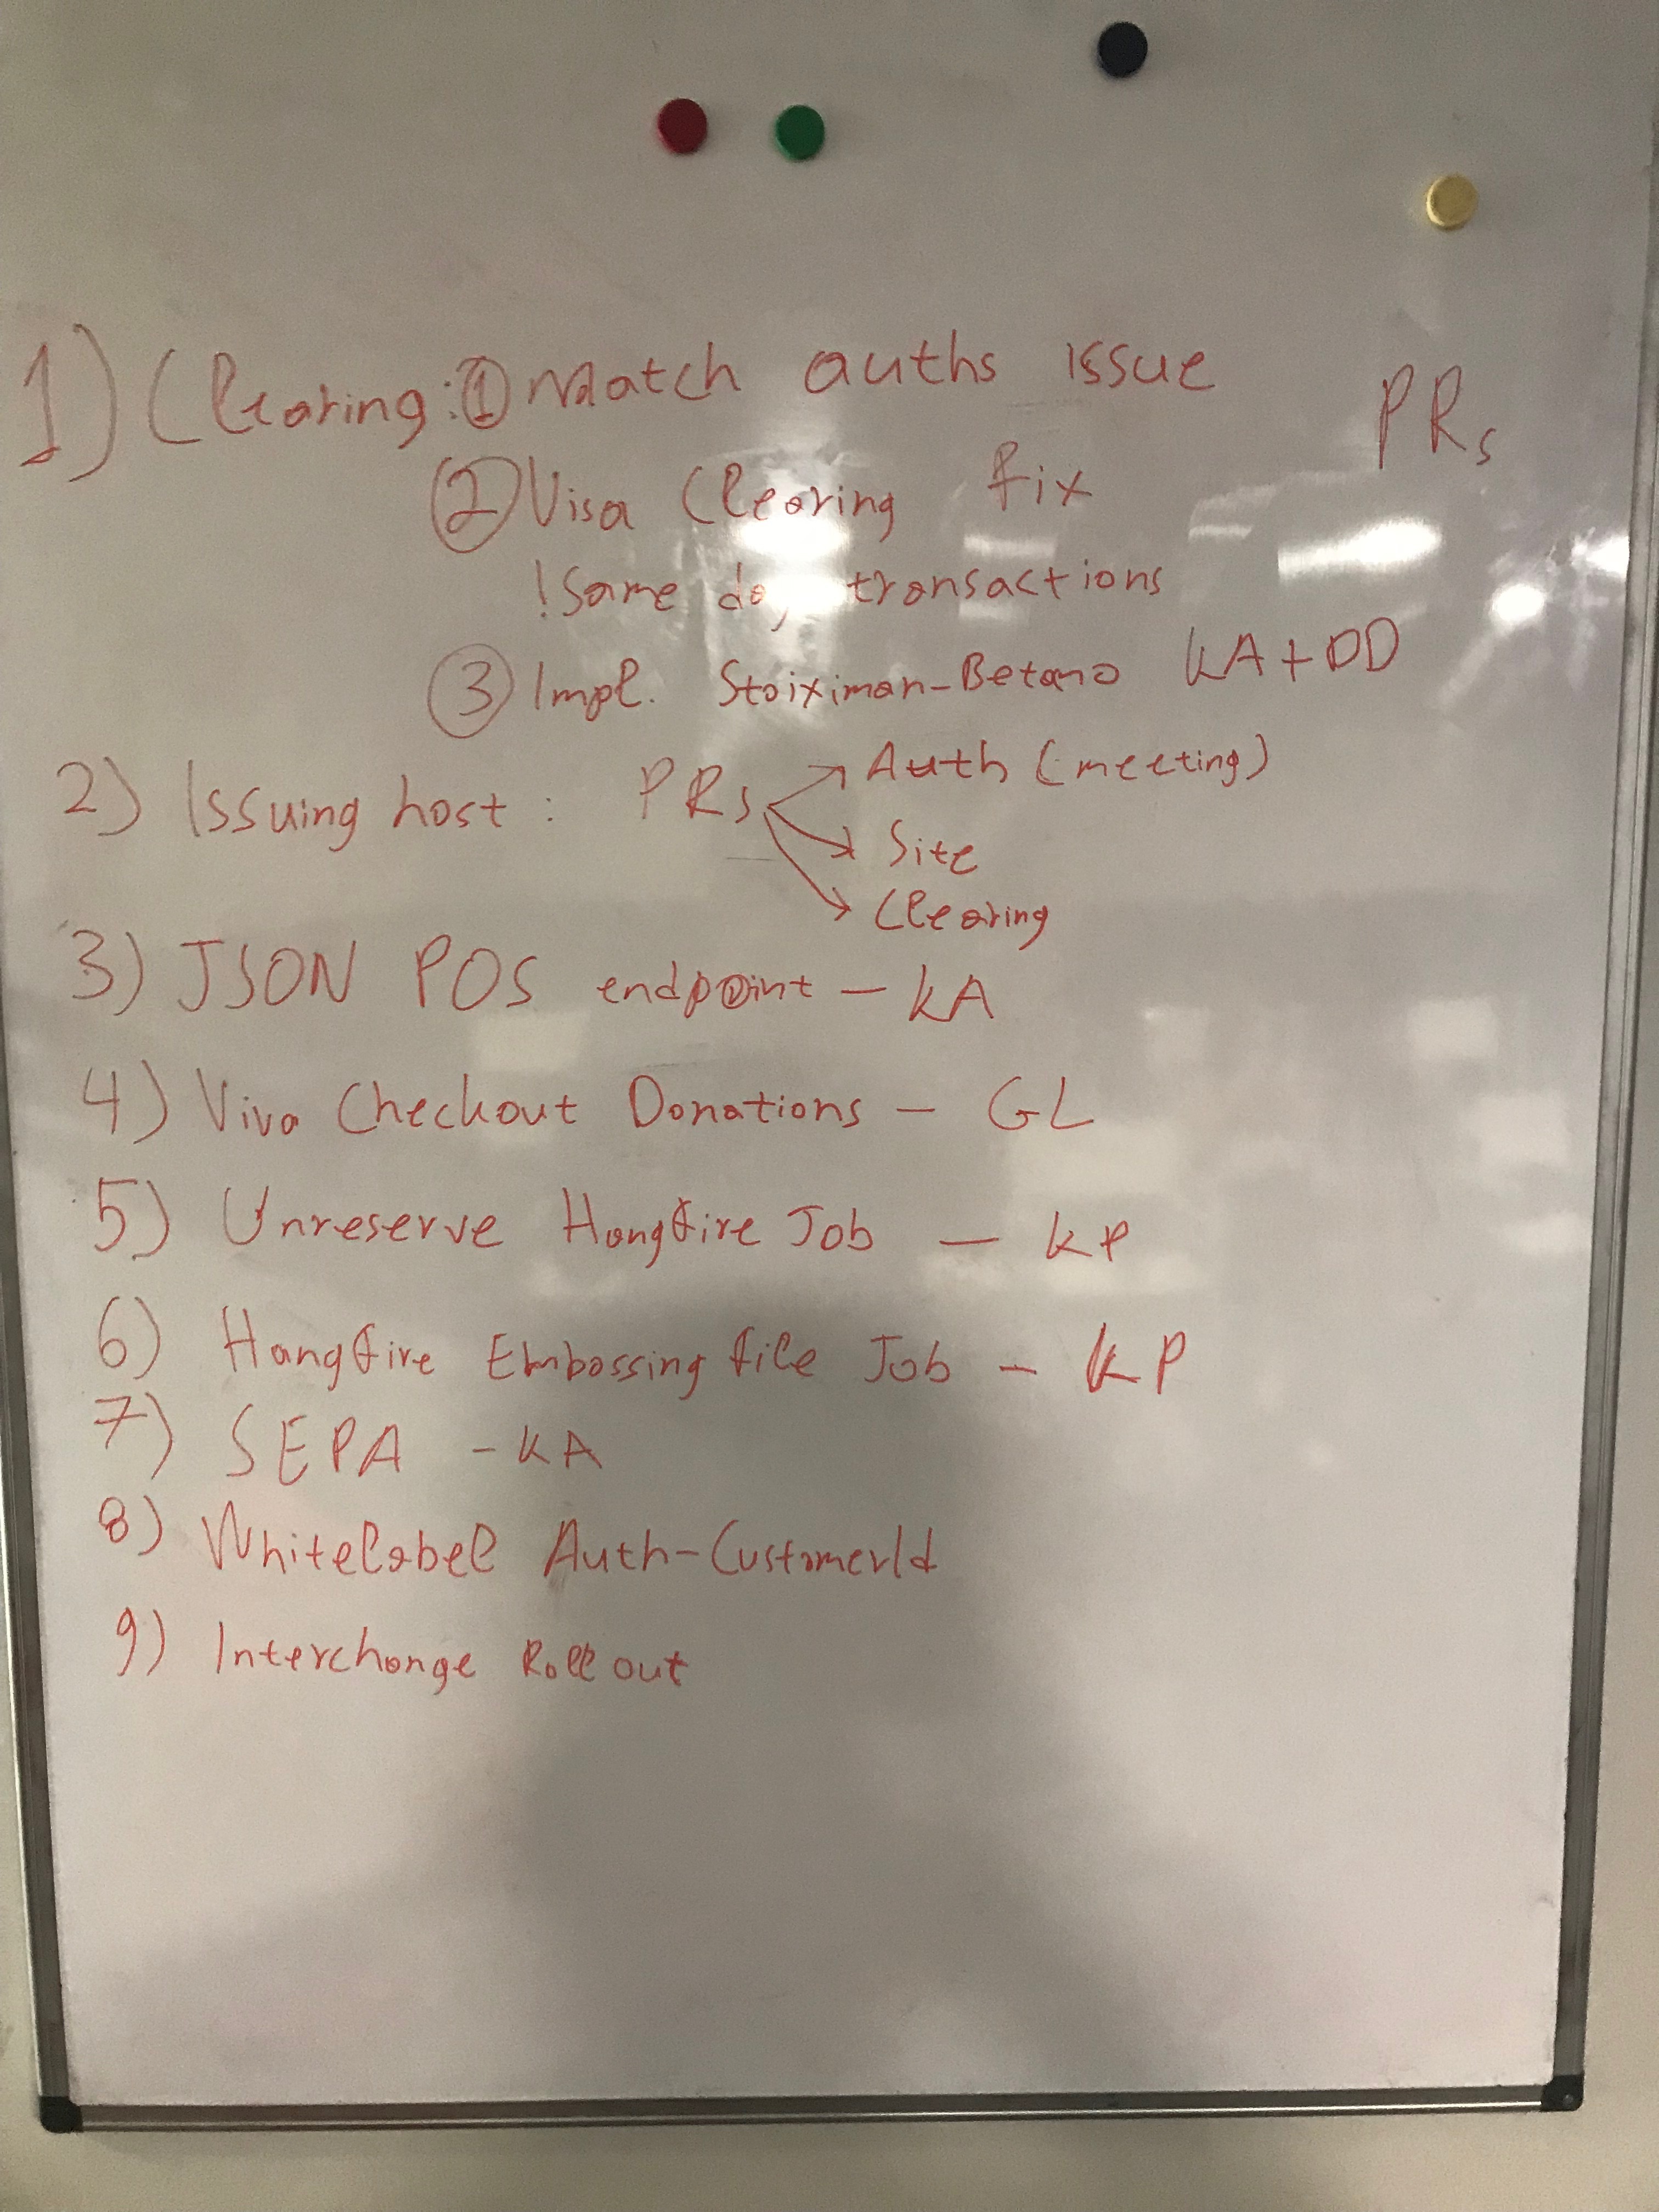 1) Clearing: ① Match auths issue PRs
② Visa Clearing fix
! Same day transactions
③ Impl. Stoiximan-Betano KA+DD
2) Issuing host : PRs → Auth (meeting)
→ Site
→ Clearing
3) JSON POS endpoint - KA
4) Viva Checkout Donations - GL
5) Unreserve Hangfire Job - KP
6) Hangfire Embossing file Job - KP
7) SEPA - KA
8) Whitelabel Auth-CustomerId
9) Interchange Roll out